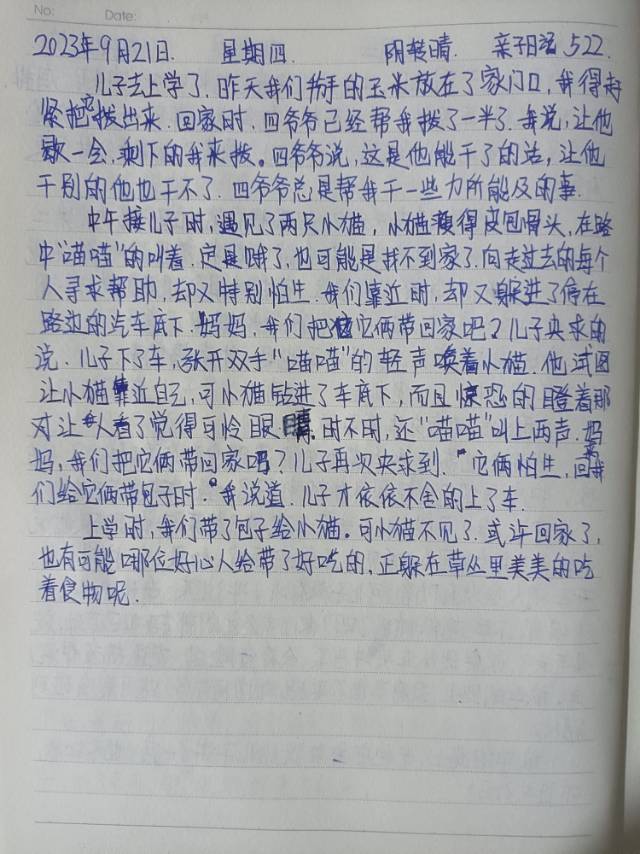 No: Date:
2023年9月21日. 星期四. 阴转晴. 亲子日记 522.
儿子去上学了.昨天我们掰的玉米放在了家门口,我得赶
紧把它拨出来.回家时.四爷爷已经帮我拨了一半了.我说,让他
歇一会,剩下的我来拨。四爷爷说,这是他能干了的活,让他
干别的他也干不了.四爷爷总是帮我干一些力所能及的事.
中午接儿子时,遇见了两只小猫,小猫瘦得皮包骨头,在路
中"喵喵"的叫着.定是饿了,也可能是找不到家了.向走过去的每个
人寻求帮助,却又特别怕生.我们靠近时,却又躲进了停在
路边的汽车底下.妈妈.我们把它俩带回家吧?儿子央求的
说.儿子下了车,张开双手"喵喵"的轻声唤着小猫.他试图
让小猫靠近自己,可小猫钻进了车底下,而且惊恐的瞪着那
对让人看了觉得可怜眼睛.时不时,还"喵喵"叫上两声.妈
妈,我们把它俩带回家吧?儿子再次央求到."它俩怕生,回来我
们给它俩带包子时。"我说道.儿子才依依不舍的上了车.
上学时,我们带了包子给小猫。可小猫不见了.或许回家了,
也有可能哪位好心人给带了好吃的,正躲在草丛里美美的吃
着食物呢.